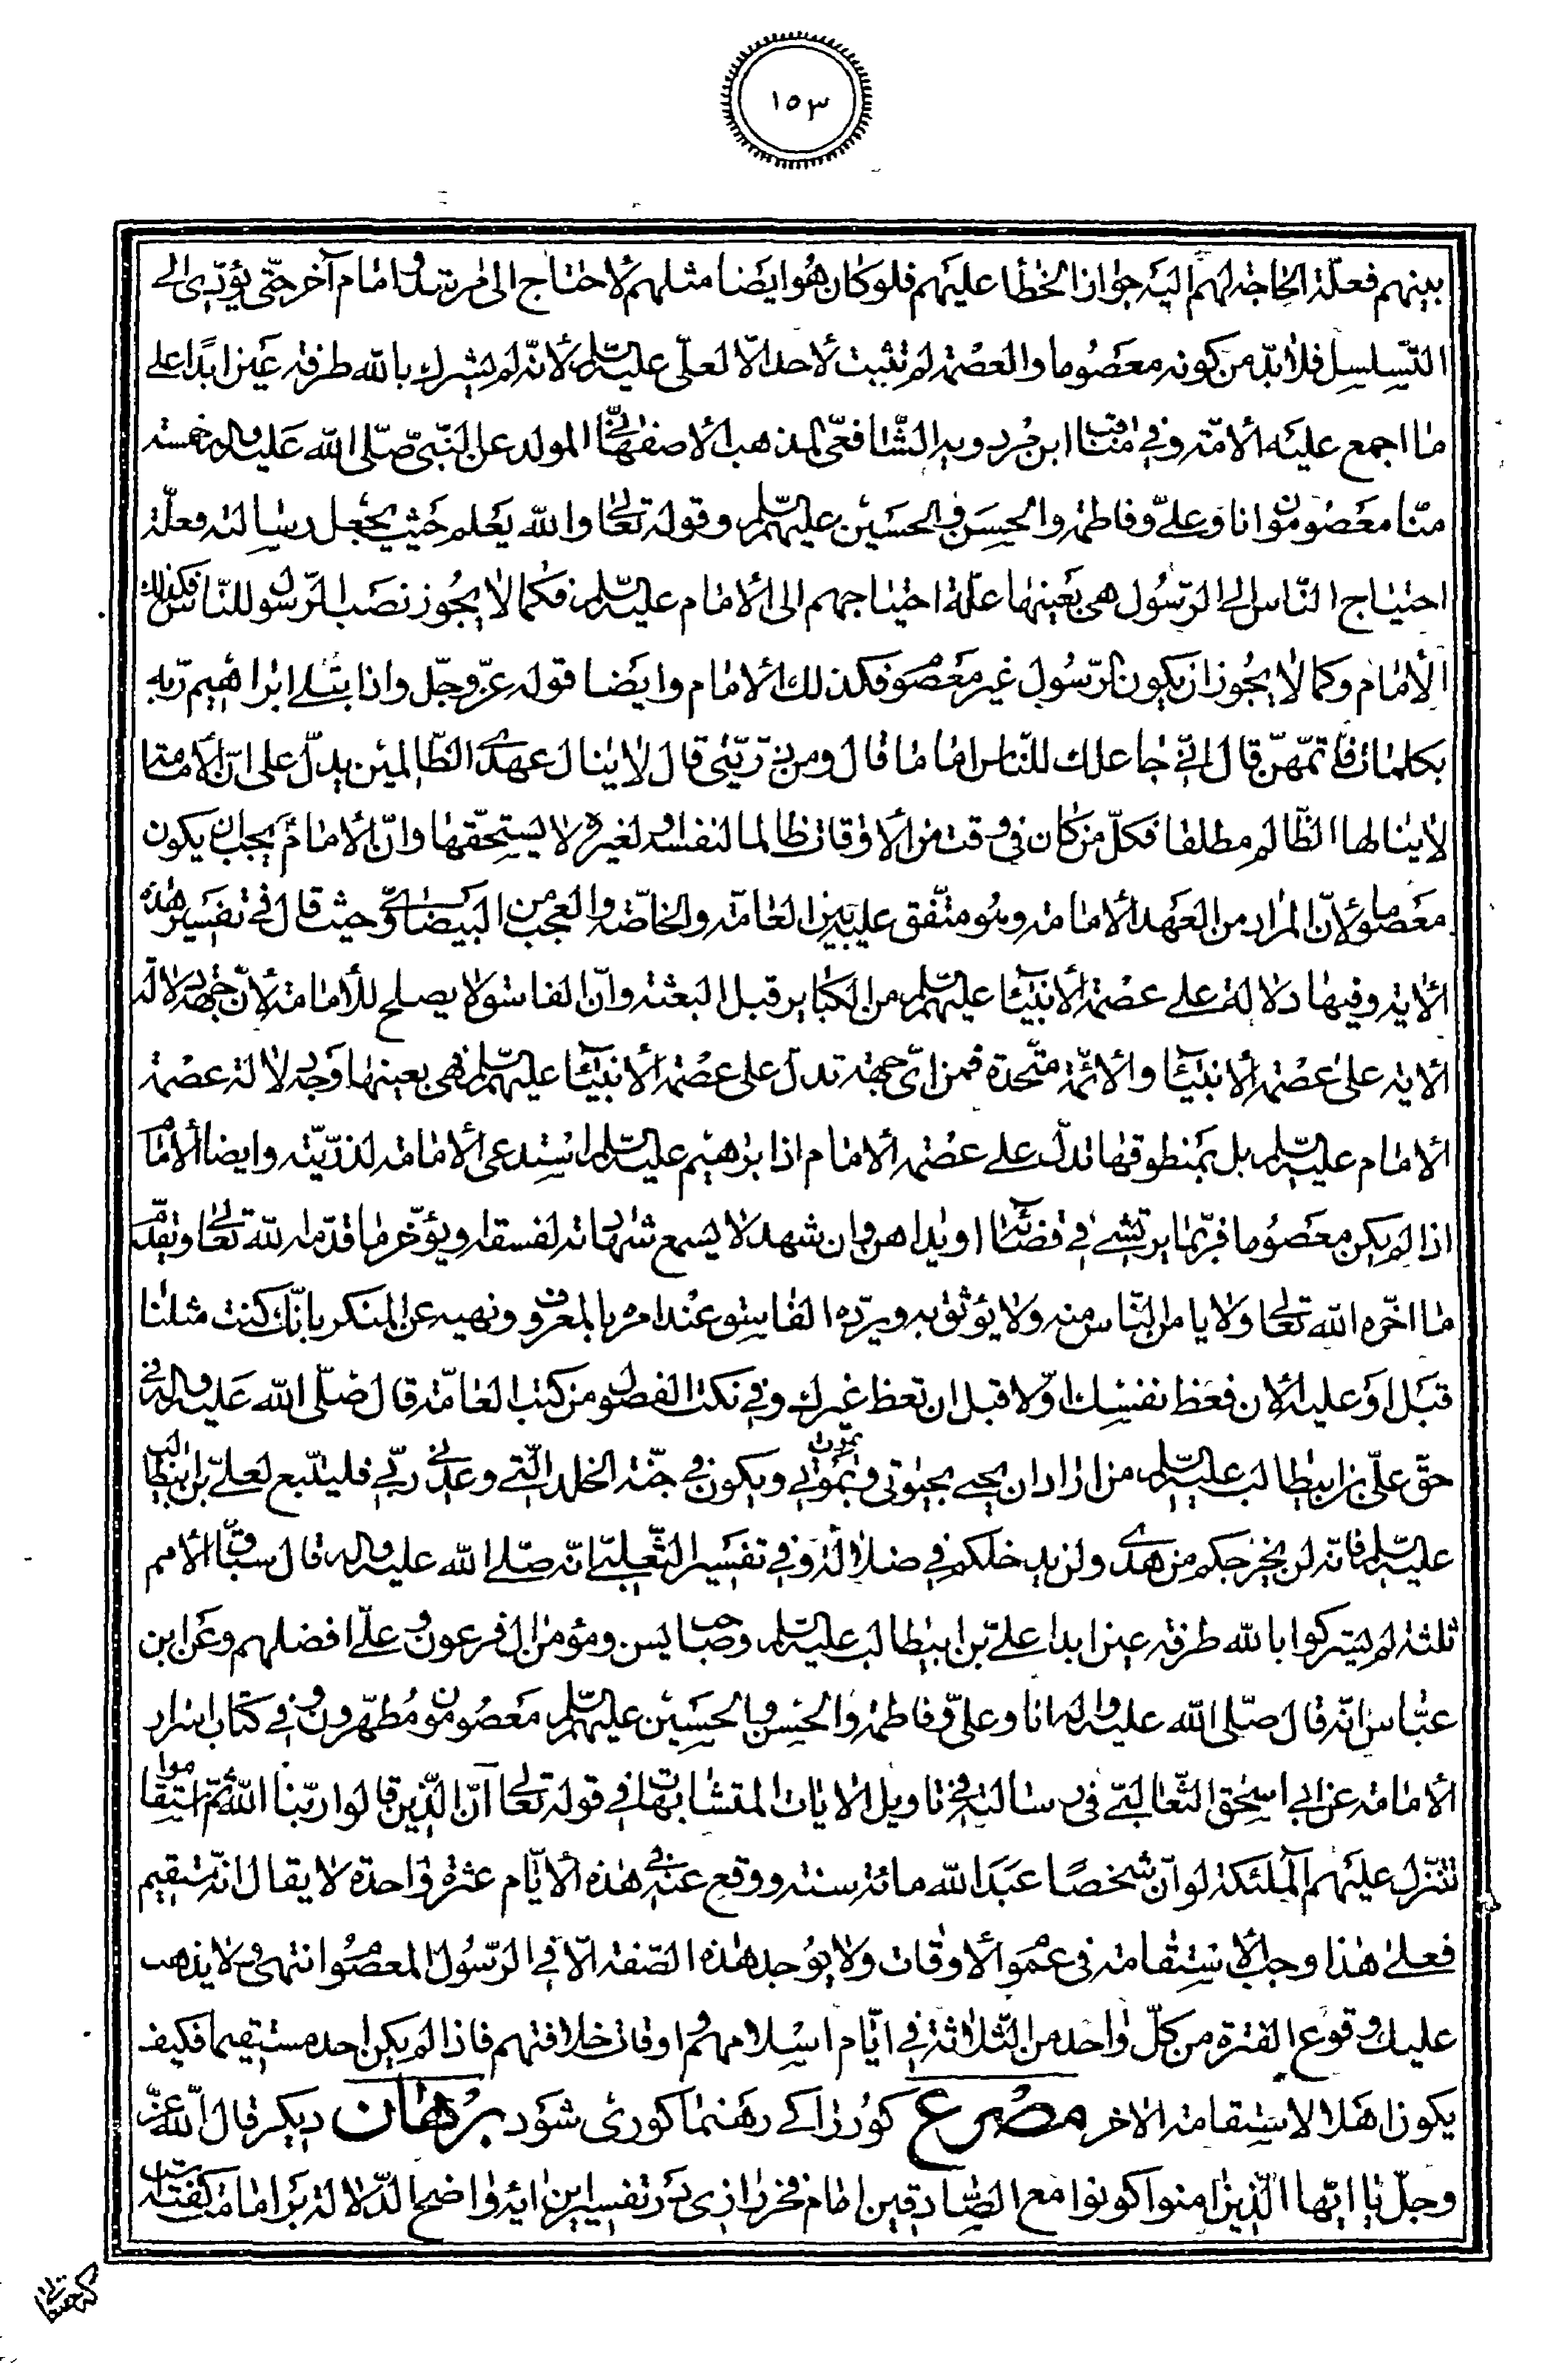 ١٥٣
بينهم فعلّة الحاجة لهم اليه جواز الخطأ عليهم فلو كان هو ايضا مثلهم لاحتاج الى مرشد و امام آخر حتّى يؤدّى الى
التّسلسل فلا بدّ من كونه معصوما والعصمة لم تثبت لاحد الّا لعلّى عليه السّلم لانّه لم يشرك بالله طرفة عين ابدًا على
ما اجمع عليه الامّة و في مناقب ابن مردويه الشّافعىّ المذهب الاصفهانىّ المولد عن النّبىّ صلّى الله عليه و اله خمسة
منّا معصومون انا و علىّ و فاطمة والحسن و الحسين عليهم السّلم و قوله تعالى والله يعلم حيث يجعل رسالته فعلّة
احتياج النّاس الى الرّسول هى بعينها علّة احتياجهم الى الامام عليه السّلم فكما لا يجوز نصب الرّسول للنّاس فكذلك
الامام و كما لا يجوز ان يكون الرّسول غير معصوم فكذلك الامام و ايضا قوله عزّ و جلّ و اذ ابتلى ابراهيم ربّه
بكلمات فاتمّهنّ قال انّى جاعلك للنّاس اماما قال و من ذرّيّتى قال لا ينال عهدى الظّالمين يدلّ على انّ الامامة
لا ينالها الظّالم مطلقا فكلّ من كان في وقت من الاوقات ظالما لنفسه و لغيره لا يستحقّها و انّ الامام يجب ان يكون
معصوما لانّ المراد من العهد الامامة و هو متّفق عليه بين العامّة والخاصّة والعجب من البيضاوىّ حيث قال في تفسير هذه
الاية و فيها دلالة على عصمة الانبيآء عليهم السّلم من الكباير قبل البعثة و انّ الفاسق لا يصلح للامامة لانّ جهة دلالة
الاية على عصمة الانبيآء والائمّة متّحدة فمن اىّ جهة تدلّ على عصمة الانبيآء عليهم السّلم فهى بعينها وجه دلالة عصمة
الامام عليه السّلم بل بمنطوقها تدلّ على عصمة الامام اذ ابرهيم عليه السّلم استدعى الامامة لذرّيّته و ايضا الامام
اذا لم يكن معصوما فربّما يرتشى في قضائه او يداهن و ان شهد لا يسمع شهادته لفسقه و يؤخّر ما قدّمه الله تعالى و يقدّم
ما اخّره الله تعالى و لا يامن النّاس منه و لا يؤثق به و يردّه الفاسق عند امره بالمعروف و نهيه عن المنكر بانّك كنت مثلنا
قبل او عليه الان فعظ نفسك اوّلا قبل ان تعظ غيرك و في نكت الفصول من كتب العامّة قال صلّى الله عليه و اله في
حقّ علىّ بن ابيطالب عليه السّلم من اراد ان يحيى بحيوتى و يموت بموتى و يكون في جنّة الخلد الّتى وعدنى ربّى فليتّبع لعلىّ بن ابيطالب
عليه السّلم فانّه لن يخرجكم من هدى و لن يدخلكم في ضلالة و في تفسير الثّعلبىّ انّه صلّى الله عليه و اله قال سبّاق الامم
ثلثة لم يشركوا بالله طرفة عين ابدا علىّ بن ابيطالب عليه السّلم و صاحب يس و مؤمن ال فرعون و علىّ افضلهم و عن ابن
عبّاس انّه قال صلّى الله عليه و اله انا و علىّ و فاطمة والحسن و الحسين عليهم السّلم معصومون مُطهّرون و في كتاب اسرار
الامامة عن ابى اسحق الثّعالبىّ في رسالته في تاويل الايات المتشابهات في قوله تعالى انّ الّذين قالوا ربّنا الله ثمّ استقاموا
تتنزّل عليهم الملئكة لو انّ شخصًا عبد الله مائة سنة و وقع عنه في هذه الايّام عثرة واحدة لا يقال انّه مستقيم
فعلى هذا وجب الاستقامة في عموم الاوقات و لا يوجد هذه الصّفة الّا في الرّسول المعصوم انتهى و لا يذهب
عليك وقوع الفترة من كلّ واحد من الثّلاثة في ايّام اسلامهم و اوقات خلافتهم فاذا لم يكن احد مستقيما فكيف
يكون اهلا لاستقامة الاخر مصرع كور را كى رهنما كورى شود برهان ديكر قال الله عزّ
و جلّ يا ايّها الّذين امنوا كونوا مع الصّادقين امام فخر رازى در تفسير اين ايه واضح الدّلاله بر امامت كفته است
كه حقتعالى